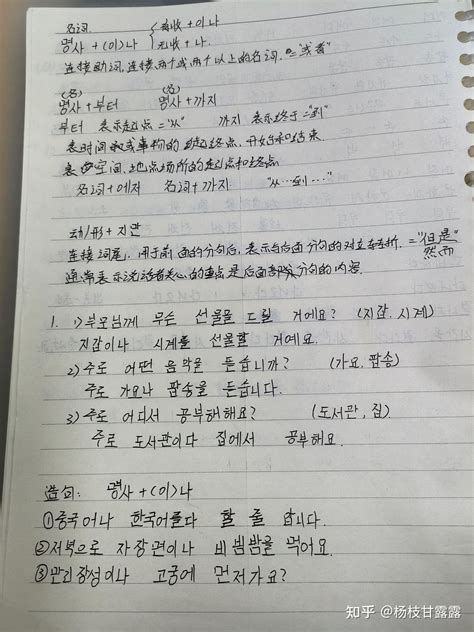 名词
명사 + (이)나 { 有收 + 이나
无收 + 나.
连接助词, 连接两个或两个以上的名词. = "或者"
(名) (名)
명사 + 부터 명사 + 까지
부터 表示起点 = "从" 까지 表示终于 = "到"
表时间或事物的起终点, 开始和结束
表空间、地点场所的起点和终点
名词 + 에서 名词 + 까지 "从…到…"
动/形 + 지만
连接词尾, 用于前面的分句后, 表示与后面分句的对立转折. = "但是"
然而
通常表示说话者关心的重点是后面分句的内容.
1. 1) 부모님께 무슨 선물을 드릴 거예요? (지갑, 시계)
지갑이나 시계를 선물할 거예요.
2) 주로 어떤 음악을 듣습니까? (가요, 팝송)
주로 가요나 팝송을 듣습니다.
3) 주로 어디서 공부해요? (도서관, 집)
주로 도서관이다 집에서 공부해요.
造句: 명사 + (이)나
①중국어나 한국어를다 할 줄 압니다.
②저녁으로 자장면이나 비빔밥을 먹어요
③만리장성이나 고궁에 먼저가요?
知乎 @杨枝甘露露